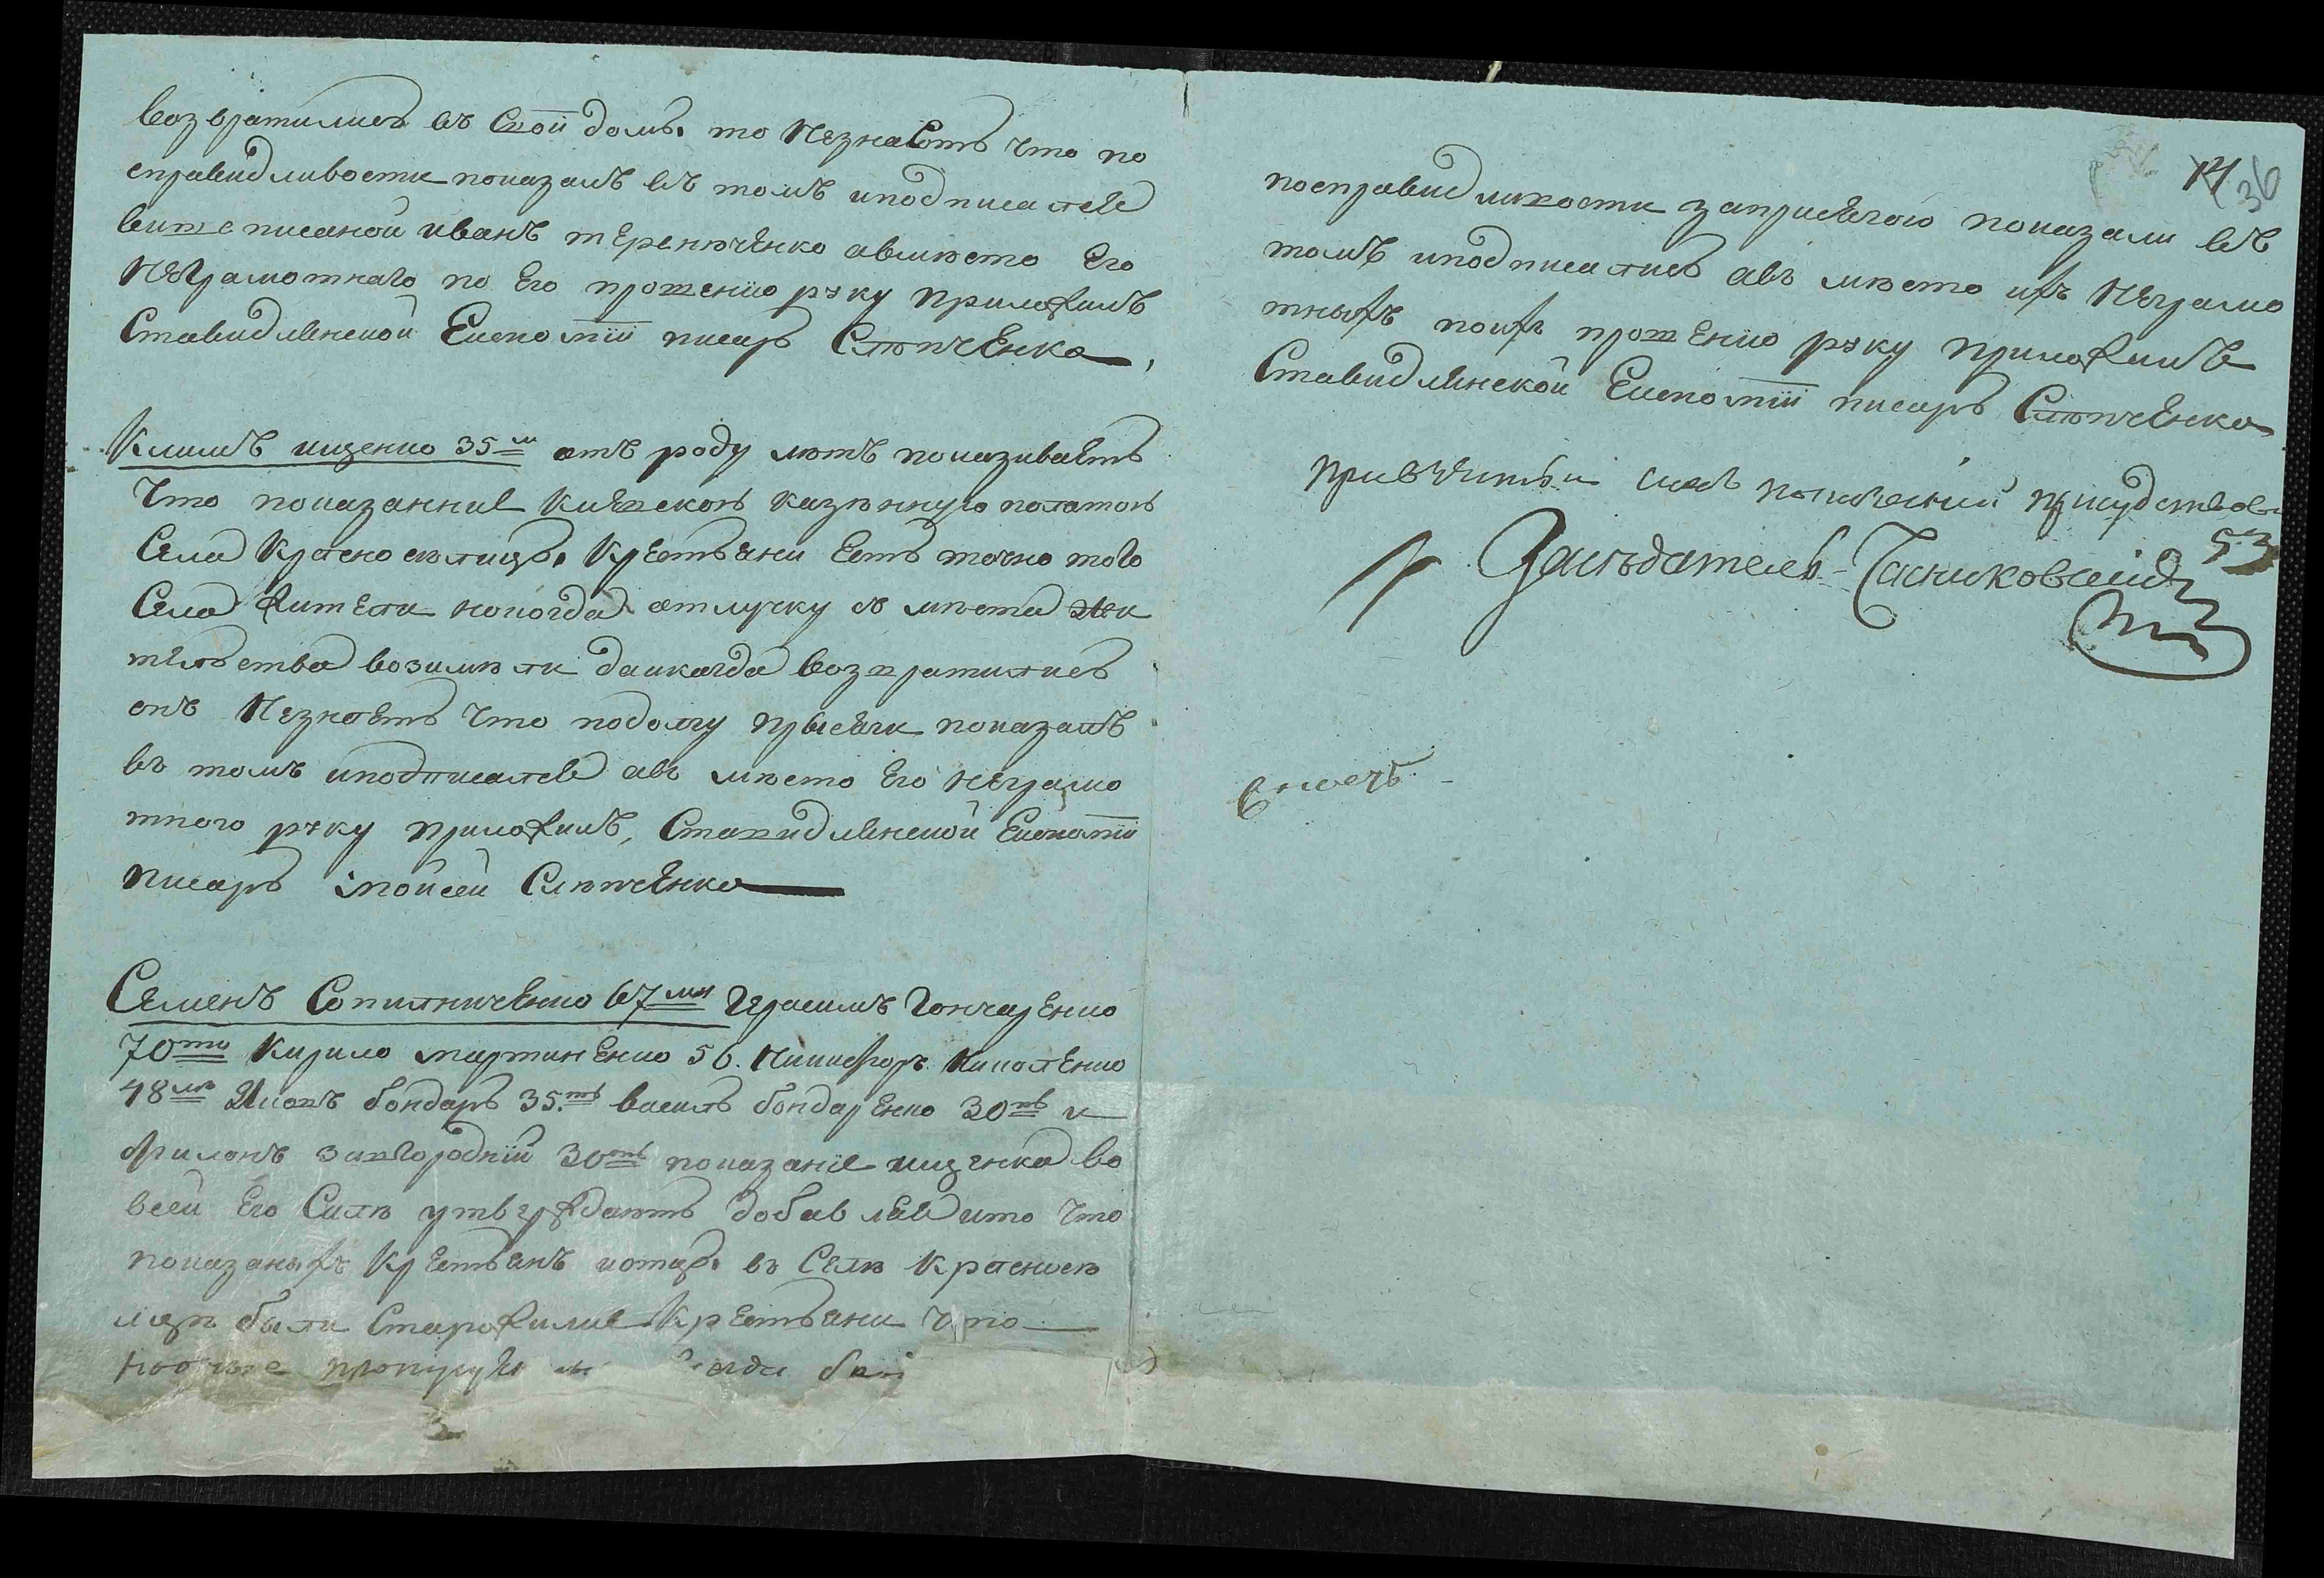 возвратились въ Свои домы то Незнаютъ Что по
справидливости показалъ въ томъ иподписался
вишеписаной иванъ терентченко авместо Его
Неграмотнаго по Его прошению руку приложилъ
Ставидлянской Економіи писарь Слюпченко
Климъ ищенко 35 отъ роду лѣтъ показиваетъ
Что показанние Киевскою казенную полатою
Села Красно селицы Крестьяни Есть точно того
Села жители нокогда отлучку съ места жи
тельства возимѣли даикагда возвратились
онъ Незнаетъ Что подолгу присяги показалъ
въ томъ иподписался авъ мѣсто Его неграмо
тного руку приложилъ, Ставидлянской Економіи
писарь Мойсей Слюпченко
Семенъ Сопилниченко 67 Герасимъ Гончаренко
70ти Кирило мартиненко 56. Никифоръ Николенко
48 Яковъ бондарь 35.ть василь бондаренко 30ть и
филонъ завгородній 30ть показаніе ищенка во
всей Его Силѣ утверждаютъ добавляя ито Что
показаныхъ Крестьянъ отцы въ Селѣ Красносе
лицѣ были Старожилие Крестьяни Что
посправидливости заприсягою показали въ
томъ иподписались авъ мѣсто ихъ Неграмо
тныхъ поихъ прошению руку приложилъ
Ставидлянской Економіи писарь Слюпченко
Засѣдатель
14
36
53